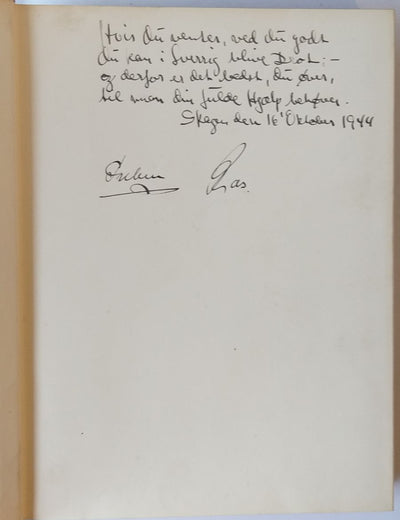 Hvis du venter, ved du godt
du kan i Sverrig blive D ot: –
og derfor er det bedst, du øver,
til man din fulde Hjælp behøver.
Skagen den 16' Oktober 1944
Ras.